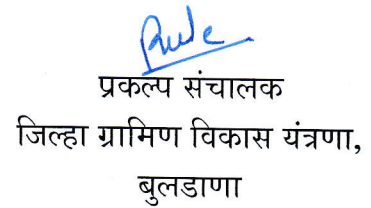 प्रकल्प संचालक
जिल्हा ग्रामिण विकास यंत्रणा,
बुलडाणा